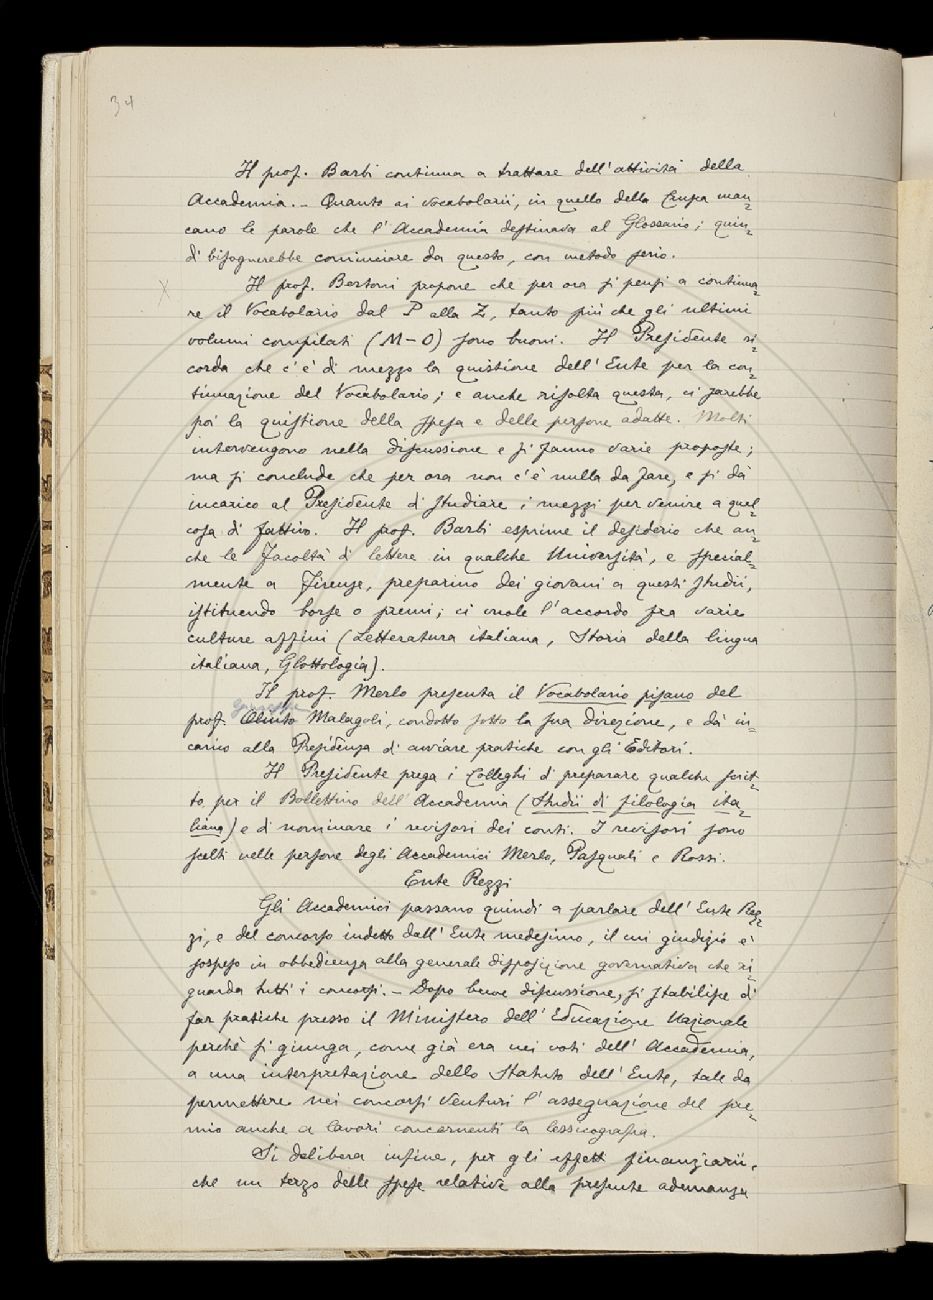 34
Il prof. Barbi continua a trattare dell'attività della
Accademia. – Quanto ai vocabolarii, in quello della Crusca man=
cano le parole che l'Accademia destinava al Glossario; quin=
di bisognerebbe cominciare da questo, con metodo serio.
Il prof. Bertoni propone che per ora si pensi a continua=
re il Vocabolario dal P alla Z, tanto più che gli ultimi
volumi compilati (M–O) sono buoni. Il Presidente ri=
corda che c'è di mezzo la quistione dell'Ente per la con=
tinuazione del Vocabolario; e anche risolta questa, ci sarebbe
poi la quistione della spesa e delle persone adatte. Molti
intervengono nella discussione e si fanno varie proposte;
ma si conclude che per ora non c'è nulla da fare, e si dà
incarico al Presidente di studiare i mezzi per venire a qual=
cosa di fattivo. Il prof. Barbi esprime il desiderio che an=
che le Facoltà di lettere in qualche Università, e special=
mente a Firenze, preparino dei giovani a questi studii,
istituendo borse o premi; ci vuole l'accordo fra varie
culture affini (Letteratura italiana, Storia della lingua
italiana, Glottologia).
Il prof. Merlo presenta il Vocabolario pisano del
Giuseppe
prof. Olinto Malagoli, condotto sotto la sua direzione, e dà in=
carico alla Presidenza di avviare pratiche con gli Editori.
Il Presidente prega i Colleghi di preparare qualche scrit=
to per il Bollettino dell'Accademia (Studii di filologia ita=
liana) e di nominare i revisori dei conti. I revisori sono
scelti nelle persone degli Accademici Merlo, Pasquali e Rossi.
Ente Rezzi
Gli Accademici passano quindi a parlare dell'Ente Rez=
zi, e del concorso indetto dall'Ente medesimo, il cui giudizio è
sospeso in obbedienza alla generale disposizione governativa che ri=
guarda tutti i concorsi. – Dopo breve discussione, si stabilisce di
far pratiche presso il Ministero dell'Educazione Nazionale
perchè si giunga, come già era nei voti dell'Accademia,
a una interpretazione dello Statuto dell'Ente, tale da
permettere nei concorsi venturi l'assegnazione del pre=
mio anche a lavori concernenti la lessicografia.
Si delibera infine, per gli effetti finanziarii,
che un terzo delle spese relative alla presente adunanza